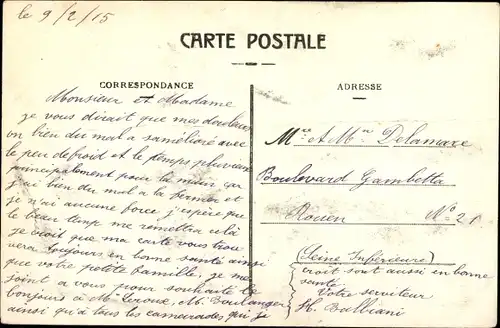 le 9/2/15
CARTE POSTALE
CORRESPONDANCE
ADRESSE
Monsieur et Madame
je vous dirait que mes douleurs
on bien du mal a samélioré avec
le peu de froid et le temps pluvieux
principalement pour la main ça
j'ai bien du mal a la fermer et
je n'ai aucune force j'espère que
le beau temp me remettra celà
je croit que ma carte vous trou
vera toujours en bonne santé ainsi
que votre petite famille, je me
joint a vous pour souhaité le
bonjours à Mr Leroux, M. Boulanger
ainsi qu'à tous les camarades qui je
Mr & Mme Delamare
Boulevard Gambetta
Rouen No 21
(Seine Inférieure)
croit sont aussi en bonne
santé
Votre serviteur